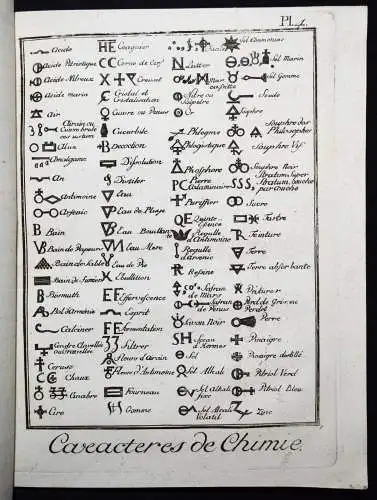 Pl. 4.
Acide
Acide Vitriolique
Acide Nitreux
Acide marin
Air
Alun
Amalgame
An
Antimoine
Arsenic
Bain
Bain de Vapeurs
Bain de Sable
Bain de Fumier
Bismuth
Bol d'Armenie
Calciner
Ceruse
Chaux
Cinabre
Cire
Coaguler
Corne de Cerf
Creuset
Cristal et
Cristalisation
Cuivre ou Venus
Cucurbite
Decoction
Dissolution
Distiler
Eau
Eau de Pluye
Eau Bouillante
Eau Mere
Eau de Vie
Ebullition
Effervescence
Esprit
Fermentation
Filtrer
Fleurs d'Airain
Fleurs d'Antimoine
Fourneau
Gomme
Nitre ou
Salpetre
Phlegme
Phlogistique
Phosphore
Pierre
Calaminaire
Purifier
Quinte
Essence
Regulle
d'Antimoine
Regulle
d'arsenic
Resine
Safran
de Mars
Safran
de Venus
Savon Noir
Sceau
d'Hermes
Sel
Sel Alkali
Sel Alkali
fixe
Sel Alkali
Volatil
Sel Ammoniac
Sel Marin
Sel Gemme
Soude
Souphre
Souphre des
Philosophes
Souphre Vif
Souphre Noir
Stratum Super
Stratum, Couche
par Couche
Sucre
Tartre
Teinture
Terre
Terre absorbante
Verd de Gris, ou
Verdet
Verre
Vinaigre
Vinaigre distillé
Vitriol Verd
Vitriol Bleu
Zinc
Caracteres de Chimie.